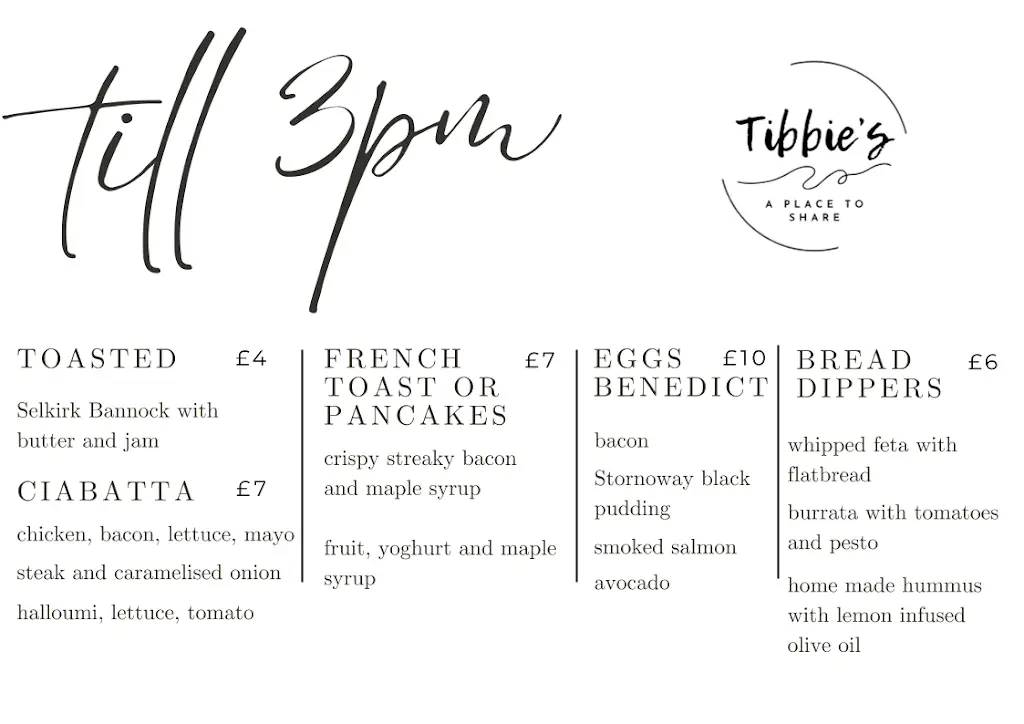 till 3pm
Tibbie's
A PLACE TO
SHARE
TOASTED £4
Selkirk Bannock with
butter and jam
CIABATTA £7
chicken, bacon, lettuce, mayo
steak and caramelised onion
halloumi, lettuce, tomato
FRENCH £7
TOAST OR
PANCAKES
crispy streaky bacon
and maple syrup
fruit, yoghurt and maple
syrup
EGGS £10
BENEDICT
bacon
Stornoway black
pudding
smoked salmon
avocado
BREAD £6
DIPPERS
whipped feta with
flatbread
burrata with tomatoes
and pesto
home made hummus
with lemon infused
olive oil